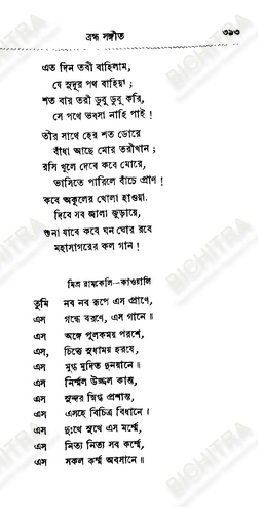 ব্রহ্ম সঙ্গীত ৩৯৩
এত দিন তরী বাহিলাম,
যে সুদূর পথ বাহিয়া;
শত বার তরী ডুবু ডুবু করি,
সে পথে ভরসা নাহি পাই!
তীর সাথে হের শত ডোরে
বাঁধা আছে মোর তরীখান;
রসি খুলে দেবে কবে মোরে,
ভাসিতে পারিলে বাঁচে প্রাণ!
কবে অকুলের খোলা হাওয়া
দিবে সব জ্বালা জুড়ায়ে,
শুনা যাবে কবে ঘন ঘোর রবে
মহাসাগরের কল গান!
মিশ্র রামকেলি—কাওয়ালি
তুমি নব নব রূপে এস প্রাণে,
এস গন্ধে বরণে, এস গানে॥
এস অঙ্গে পুলকময় পরশে,
এস, চিত্তে সুধাময় হরষে,
এস মুগ্ধ মুদিত দুনয়ানে॥
এস নির্ম্মল উজ্জল কান্ত,
এস সুন্দর স্নিগ্ধ প্রশান্ত,
এস এসহে বিচিত্র বিধানে।
এস দুঃখে সুখে এস মর্ম্মে,
এস নিত্য নিত্য সব কর্ম্মে,
এস সকল কর্ম্ম অবসানে॥
BICHITRA